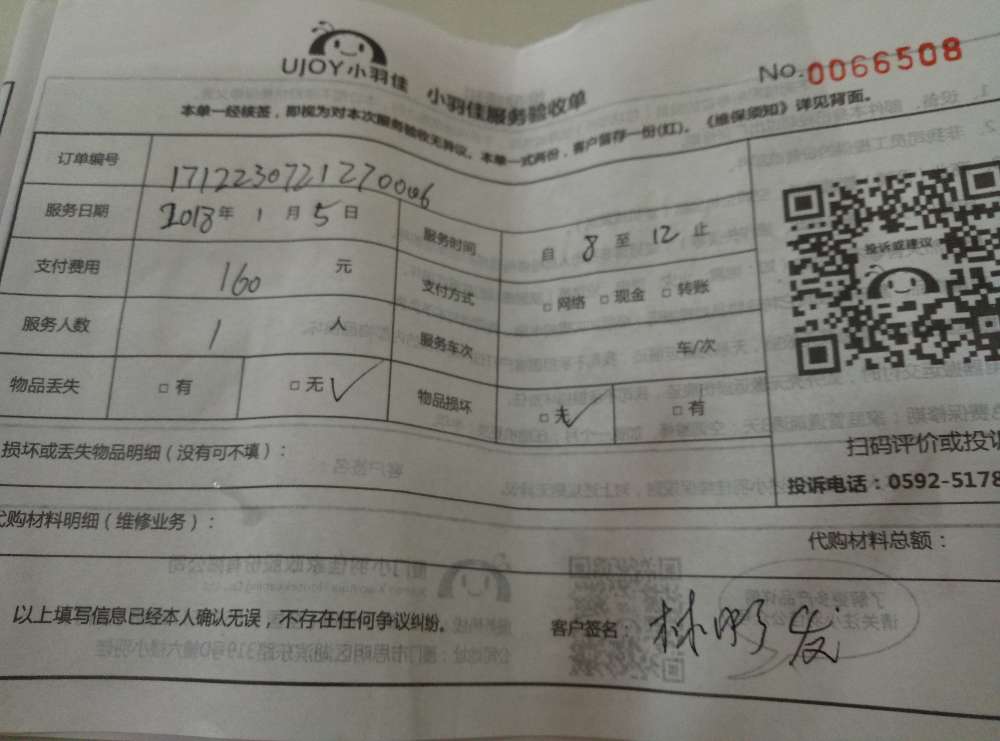 UJOY小羽佳 小羽佳服务验收单
No.0066508
本单一经核签，即视为对本次服务验收无异议。本单一式两份，客户留存一份(红)。《维保须知》详见背面。
订单编号 1712230721270006
服务日期 2018年 1 月 5 日 服务时间 自 8 至 12 止
支付费用 160 元 支付方式 □网络 □现金 □转账
服务人数 1 人 服务车次 车/次
物品丢失 □有 □无√ 物品损坏 □无√ □有
投诉或建议
扫码评价或投诉
投诉电话：0592-5178
损坏或丢失物品明细（没有可不填）：
代购材料明细（维修业务）：
代购材料总额：
以上填写信息已经本人确认无误，不存在任何争议纠纷。
客户签名：林